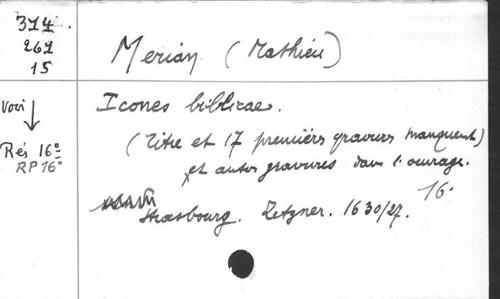 374
267
15
Merian (Mathieu)
Voir
Rés 16°
RP 16°
Icones biblicae.
(Titre et 17 premières gravures manquent)
et autres gravures dans l'ouvrage.
16°
Strasbourg. Zetzner. 1630/27.